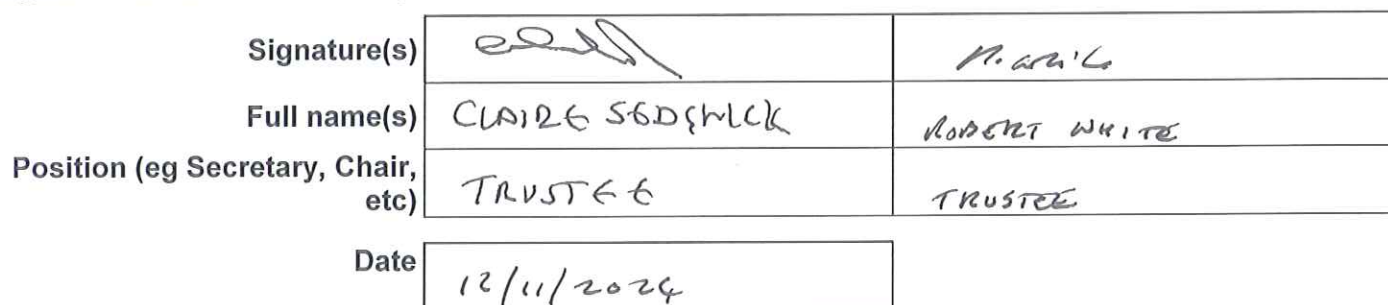 Signature(s)
Full name(s) CLAIRE SEDGWICK ROBERT WHITE
Position (eg Secretary, Chair,
etc) TRUSTEE TRUSTEE
Date 12/11/2024